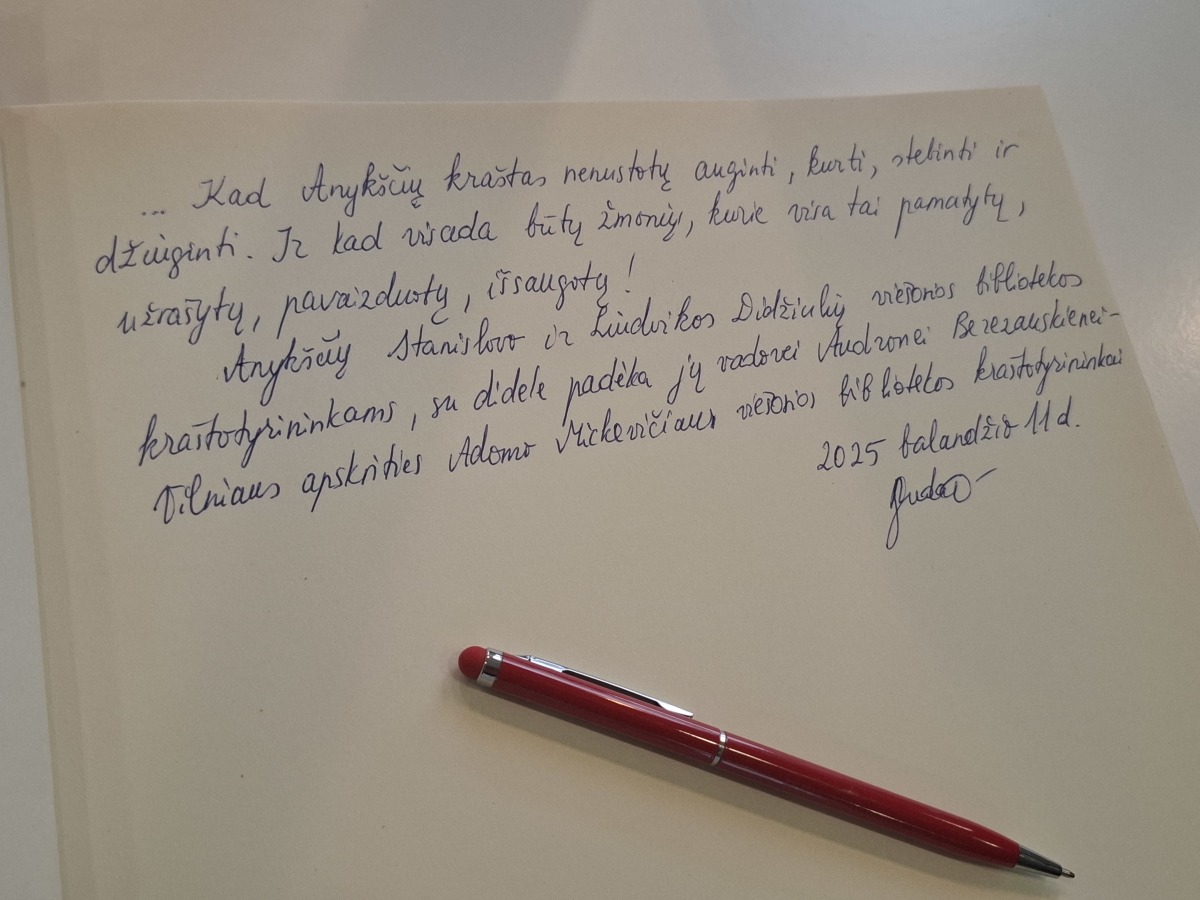 ... Kad Anykščių kraštas nenustotų auginti, kurti, stebinti ir
džiuginti. Ir kad visada būtų žmonių, kurie visa tai pamatytų,
užrašytų, pavaizduotų, išsaugotų!
Anykščių Stanislovo ir Liudvikos Didžiulių viešosios bibliotekos
kraštotyrininkams, su didele padėka jų vadovei Audronei Berezauskienei -
Vilniaus apskrities Adomo Mickevičiaus viešosios bibliotekos kraštotyrininkai
2025 balandžio 11 d.